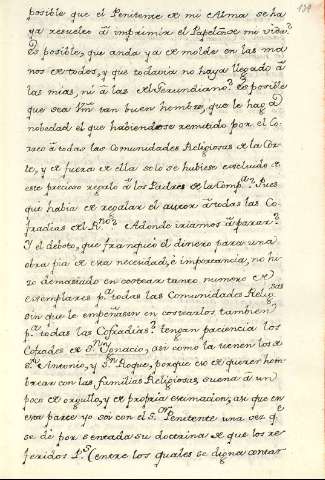 139
posible que el Penitente de mi Alma se ha
ya resuelto à imprimir el Papelón de mi vida?
Es posible, que anda ya de molde en las ma
nos de todos, y que todavia no haya llegado à
las mias, ni à las del Gerundiano? Es posible
que sea Vm tan buen hombre, que le haga
nobedad el que habiendose remitido por el Co
rreo à todas las Comunidades Religiosas de la Cor
te, y de fuera de ella solo se hubiese excluido de
este precioso regalo à los Padres de la Comp.ª? Pues
que habia de regalar el autor à todas las Co
fradias del R.no? Adonde iriamos à parar?
Y el deboto, que franqueó el dinero para una
obra pia de esa necesidad, è importancia, no hi
zo demasiado en costear tanto numero de
exemplares p.ª todas las Comunidades Relig.sas
sin que le empeñasen en costearlos tambien
p.ª todas las Cofradias? tengan paciencia los
Cofrades de S.n Ygnacio, asi como la tienen los de
S.n Antonio, y S.n Roque, porque eso de querer hom
brear con las familias Religiosas, suena à un
poco de orgullo, y de propria estimacion; asi que en
esta parte yo soy con el S.or Penitente una vez q.e
se dé por sentada su doctrina de que los re
feridos P.s (entre los quales se digna contar